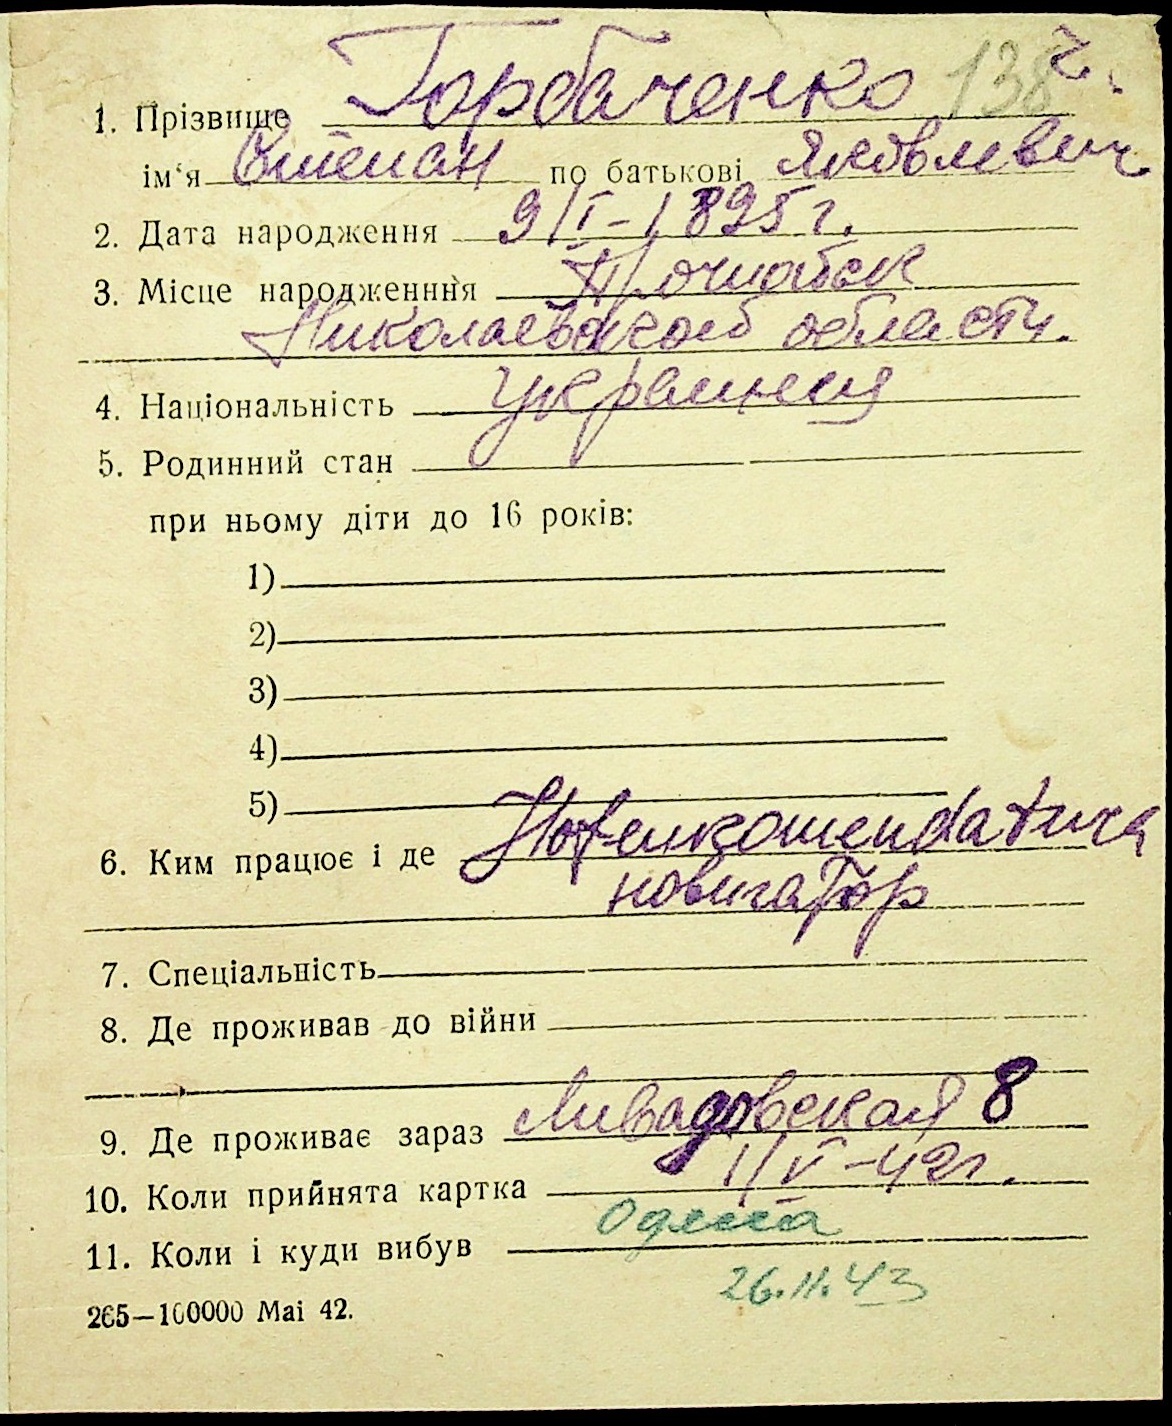 1. Прізвище Горбаченко 138
ім‘я Степан по батькові Яковлевич
2. Дата народження 9/I-1895 г.
3. Місце народженння
Николаевской области.
4. Національність украинец
5. Родинний стан
при ньому діти до 16 років:
1)
2)
3)
4)
5)
6. Ким працює і де Hafenкomendatura
новигатор
7. Спеціальність
8. Де проживав до війни
9. Де проживає зараз Ливадовская 8
10. Коли прийнята картка 1/V-42г.
11. Коли і куди вибув Одесса
26.11.43
265—100000 Маі 42.